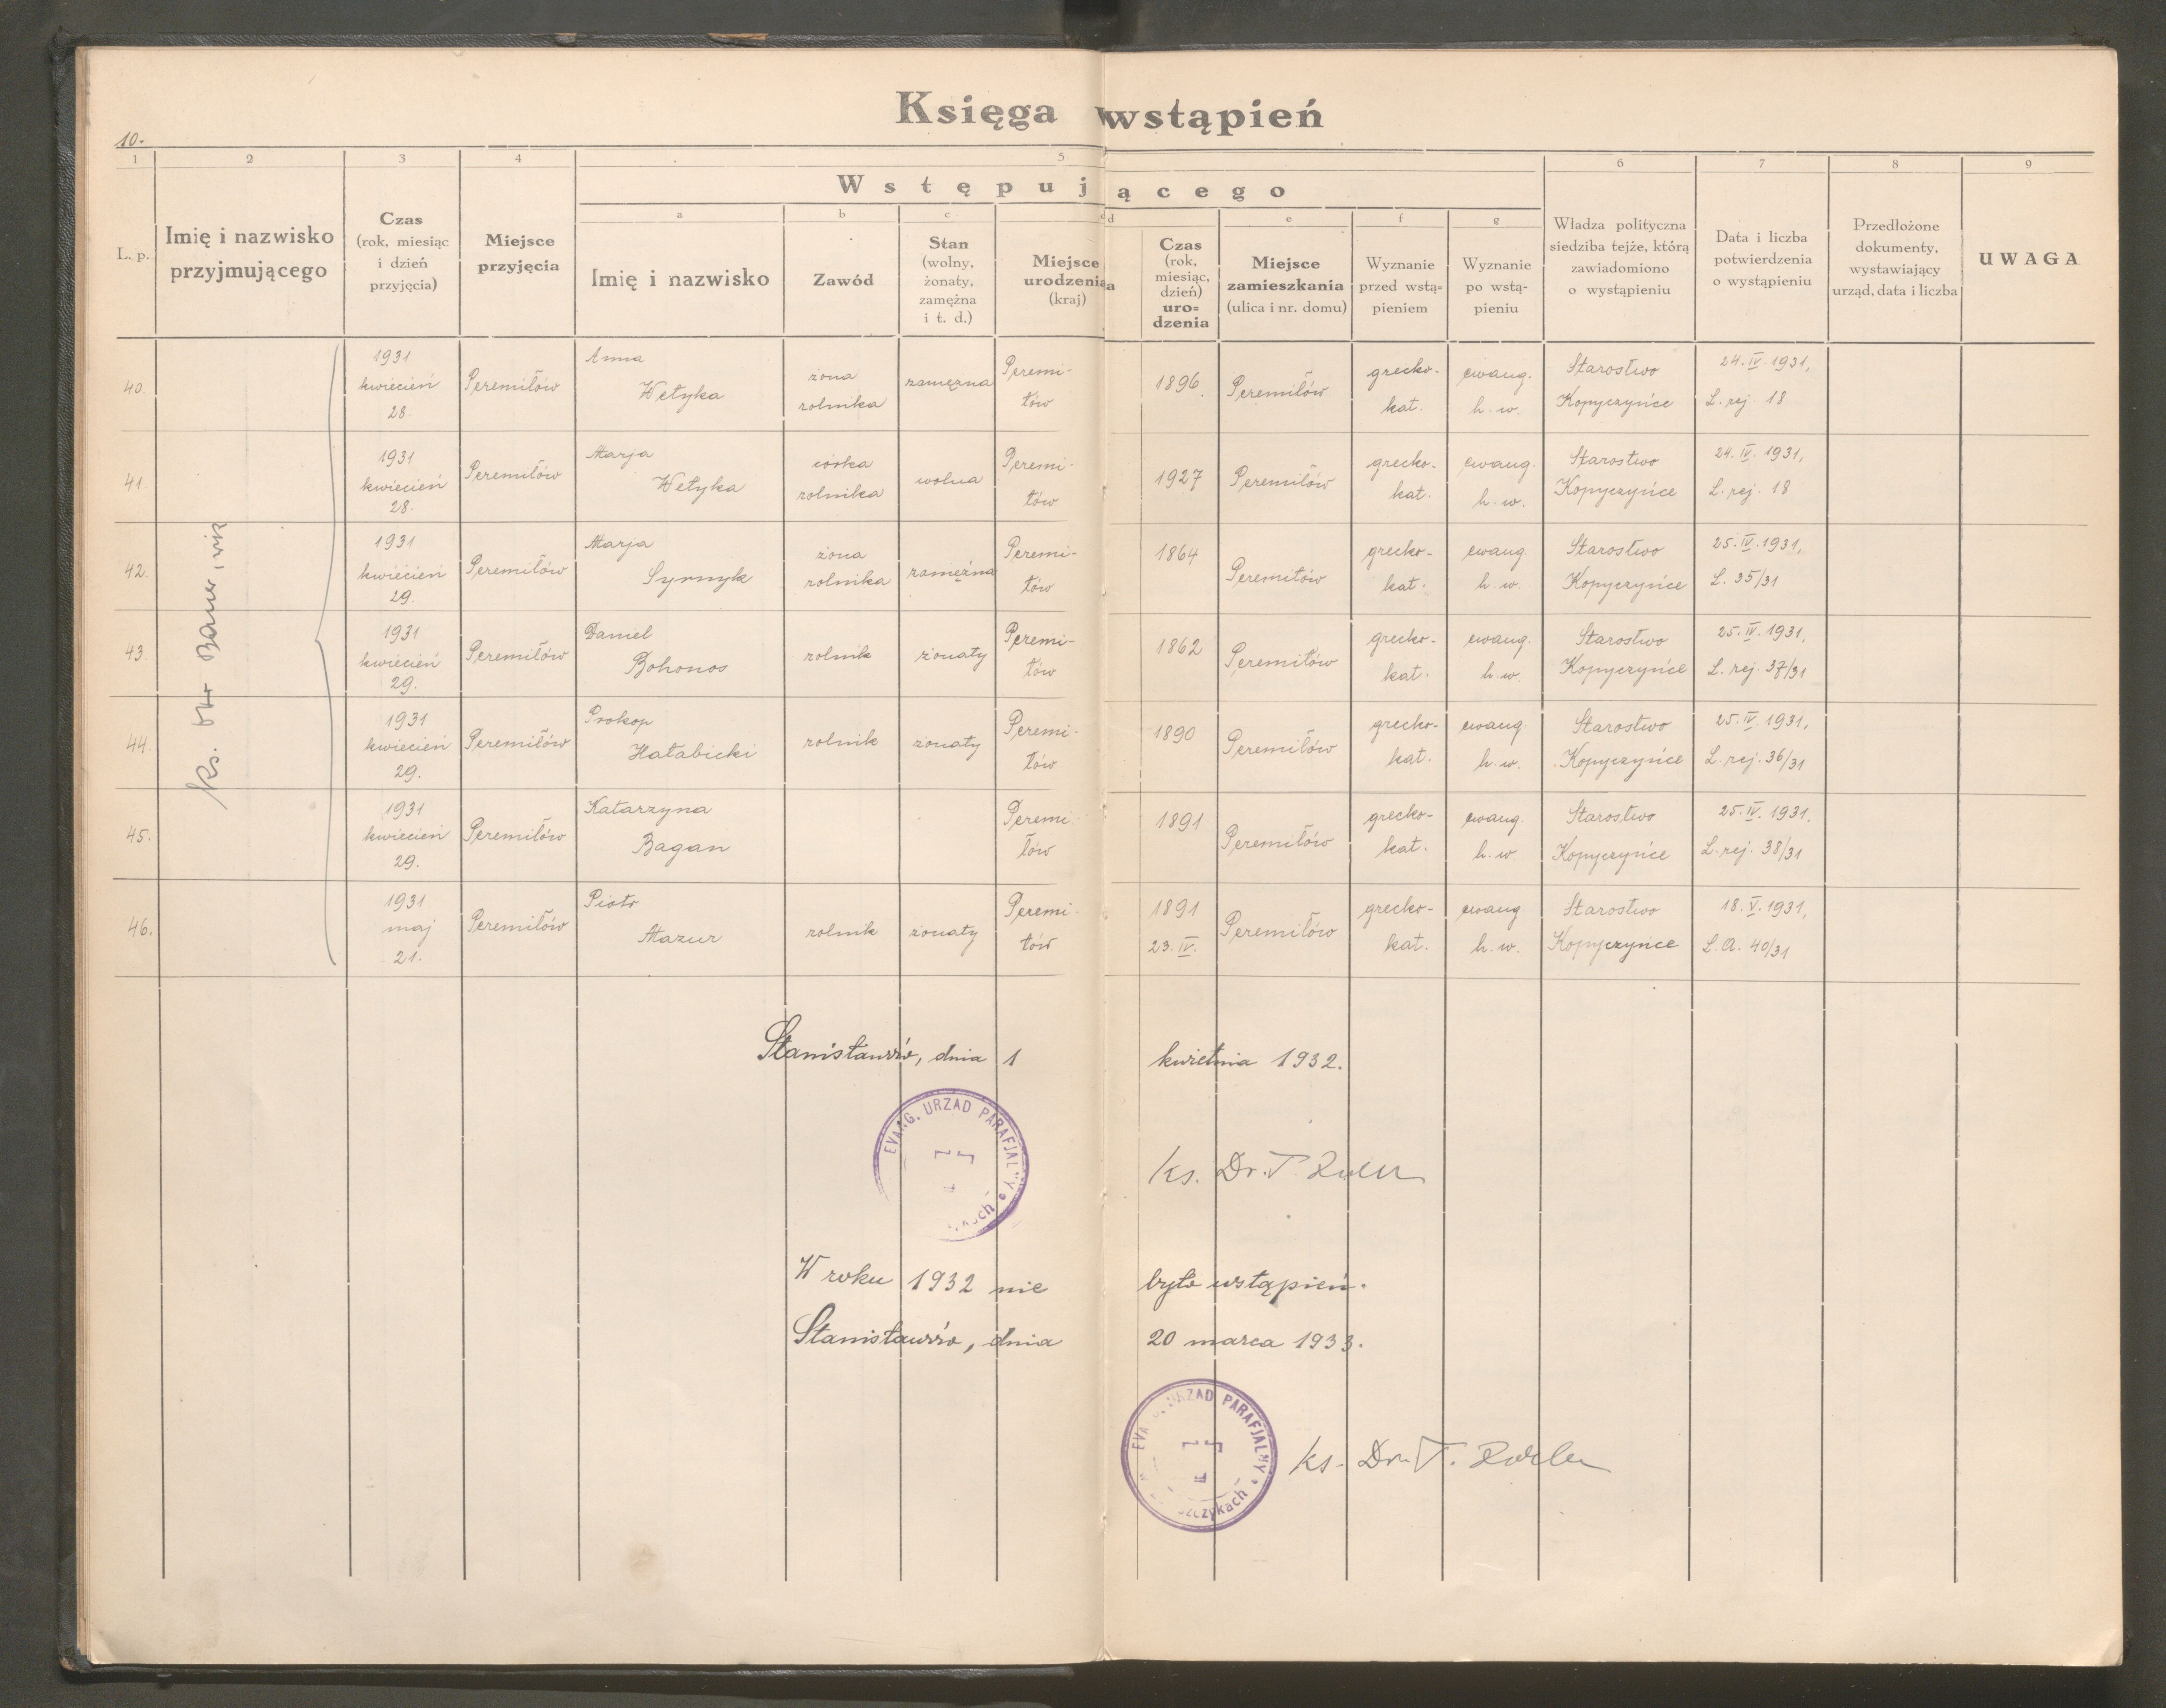 Księga wstąpień
10.
1 2 3 4 5 6 7 8 9
Wstępującego
a b c d e f g
L. p.
Imię i nazwisko
przyjmującego
Czas
(rok, miesiąc
i dzień
przyjęcia)
Miejsce
przyjęcia
Imię i nazwisko
Zawód
Stan
(wolny,
żonaty,
zamężna
i t. d.)
Miejsce
urodzenia
(kraj)
Czas
(rok,
miesiąc,
dzień)
uro=
dzenia
Miejsce
zamieszkania
(ulica i nr. domu)
Wyznanie
przed wstą=
pieniem
Wyznanie
po wstą-
pieniu
Władza polityczna
siedziba tejże, którą
zawiadomiono
o wystąpieniu
Data i liczba
potwierdzenia
o wystąpieniu
Przedłożone
dokumenty,
wystawiający
urząd, data i liczba
UWAGA
ks. Bauer, wik
40.
1931
kwiecień
28.
Peremiłów
Anna
Wełyka
żona
rolnika
zamężna
Peremi-
łów
1896.
Peremiłów
grecko-
kat.
ewang.
h. w.
Starostwo
Kopyczyńce
24. IV. 1931,
L. rej. 18
41.
1931
kwiecień
28.
Peremiłów
Marja
Wełyka
córka
rolnika
wolna
Peremi-
łów
1927
Peremiłów
grecko-
kat.
ewang.
h. w.
Starostwo
Kopyczyńce
24. IV. 1931,
L. rej. 18
42.
1931
kwiecień
29.
Peremiłów
Marja
Syrnyk
żona
rolnika
zamężna
Peremi-
łów
1864
Peremiłów
grecko-
kat.
ewang.
h. w.
Starostwo
Kopyczyńce
25. IV. 1931,
L. 35/31
43.
1931
kwiecień
29.
Peremiłów
Daniel
Bohonos
rolnik
żonaty
Peremi-
łów
1862
Peremiłów
grecko-
kat.
ewang.
h. w.
Starostwo
Kopyczyńce
25. IV. 1931,
L. rej. 37/31
44.
1931
kwiecień
29.
Peremiłów
Prokop
Hałabicki
rolnik
żonaty
Peremi-
łów
1890
Peremiłów
grecko-
kat.
ewang.
h. w.
Starostwo
Kopyczyńce
25. IV. 1931,
L. rej. 36/31
45.
1931
kwiecień
29.
Peremiłów
Katarzyna
Bagan
Peremi-
łów
1891
Peremiłów
grecko-
kat.
ewang.
h. w.
Starostwo
Kopyczyńce
25. IV. 1931.
L. rej. 38/31
46.
1931
maj
21.
Peremiłów
Piotr
Mazur
rolnik
żonaty
Peremi-
łów
1891
23. IV.
Peremiłów
grecko-
kat.
ewang.
h. w.
Starostwo
Kopyczyńce
18. V. 1931,
L. A. 40/31
Stanisławów, dnia 1 kwietnia 1932.
EVANG. URZAD PARAFJAL
ks. Dr. T. Zöckler
W roku 1932 nie było wstąpień.
Stanisławów, dnia 20 marca 1933.
URZAD PARAFJALNY
ks. Dr. T. Zöckler